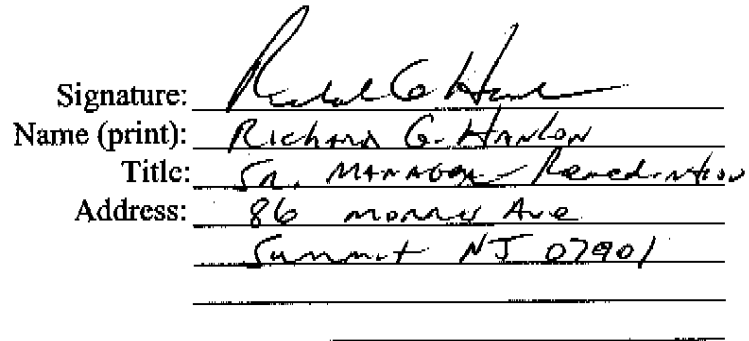 Signature: Richard G Hanlon
Name (print): Richard G. Hanlon
Title: Sr. Manager Remediation
Address: 86 Morris Ave
Summit NJ 07901